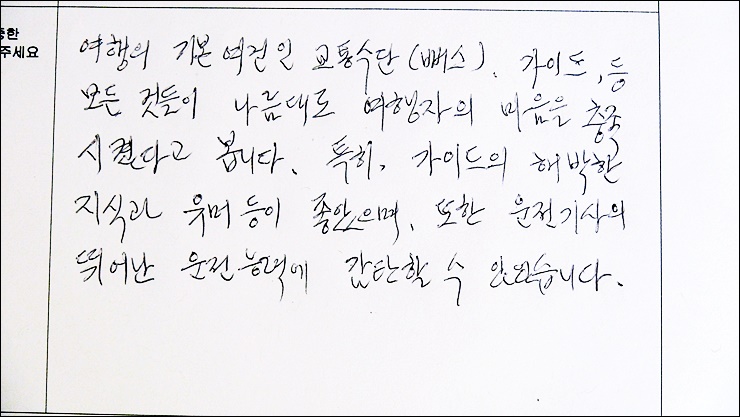 중한
주세요
여행의 기본 여건인 교통수단(뻐스), 가이드, 등
모든 것들이 나름대로 여행자의 마음을 충족
시켰다고 봅니다. 특히, 가이드의 해박한
지식과 유머 등이 좋았으며, 또한 운전기사의
뛰어난 운전능력에 감탄할 수 있었습니다.